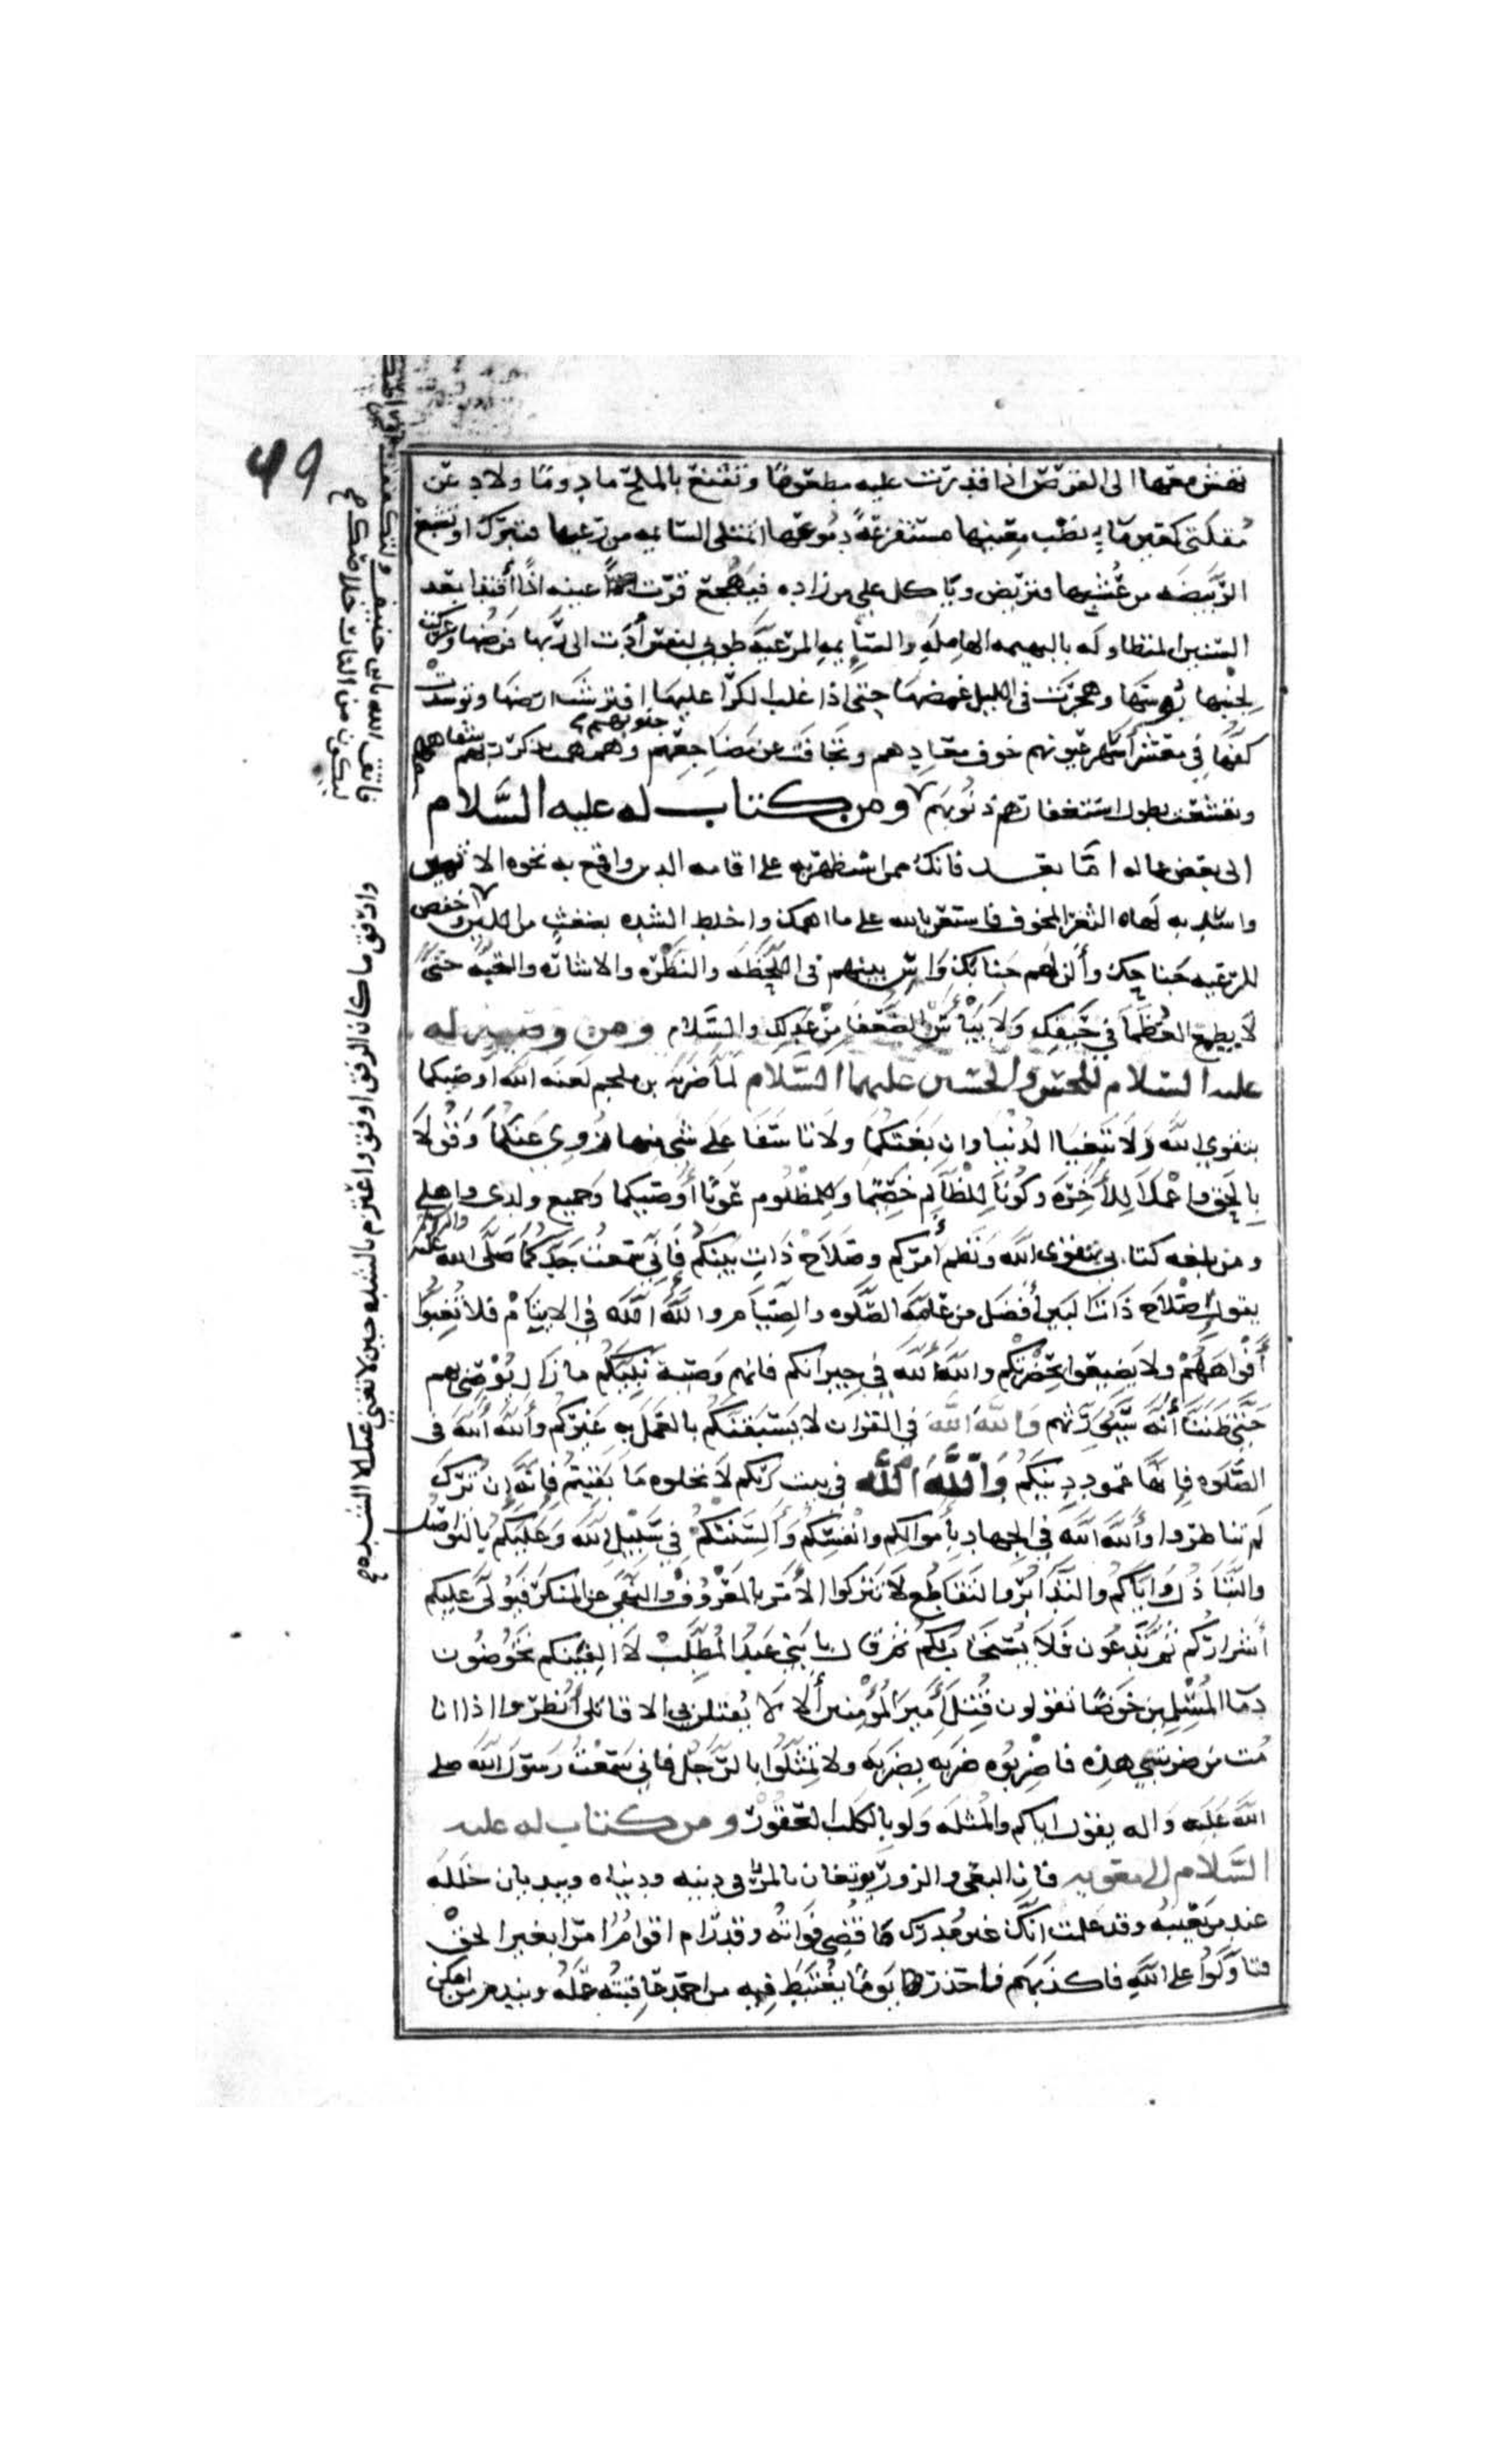 تهش معها الى القرص اذا قدرت عليه مطعوما وتقنع بالملح مادوما ولادعن
مقلتى كعين ماء نضب معينها مستفرغة دموعها اتمتلى السايمه من رعيها فتبرك اوتشبع
الربيضه من عشبها فتربض وياكل على من زاده فيهجع قرت اذا عينه اذا اقتدا بعد
السنين المتطاوله بالبهيمه الهامله والسايمه المرعيه طوبى لنفس أدت الى ربها فرضها وعركت
بجنبها بؤسها وهجرت فى الليل غمضها حتى اذا غلب الكرا عليها افترشت ارضها وتوسدت
كفها في معشر أسهر عيونهم خوف معادهم وتجافت عن مضاجعهم جنوبهم وهمهمت بذكر ربهم شفاههم
وتقشعت بطول استغفارهم ذنوبهم ومن كتاب له عليه السلام
الى بعض عماله اما بعد فانك ممن استظهر به على اقامه الدين واقمع به نخوه الاثيم
واسد به لهاه الثغر المخوف فاستعن بالله على ما اهمك واخلط الشده بضغث من اللين واخفض
للرعيه جناحك وألن لهم جنابك وآس بينهم فى اللحظه والنظره والاشاره والتحيه حتى
لا يطمع العظما في حيفك ولا ييأس الضعفا من عدلك والسلام ومن وصيه له
عليه السلام للحسن والحسين عليهما السلام لما ضربه بن ملجم لعنه الله اوصيكما
بتقوى الله ولا تبغيا الدنيا وان بغتكما ولا تاسفا على شى منها زوى عنكما وقولا
بالحق واعملا للأخره وكونا للظالم خصما وللمظلوم عونا أوصيكما وجميع ولدى واهلى
ومن بلغه كتابى بتقوى الله ونظم أمركم وصلاح ذات بينكم فانى سمعت جدكما صلى الله عليه واله
يقول اصلاح ذات البين أفضل من عامه الصلوه والصيام والله الله فى الايتام فلا تغبوا
أفواههم ولا يضيعوا بحضرتكم والله الله فى جيرانكم فانهم وصية نبيكم ما زال يوصى بهم
حتى ظننا أنه سيورثهم والله الله فى القران لا يسبقنكم بالعمل به غيركم والله الله فى
الصلوه فانها عمود دينكم والله الله فى بيت ربكم لا تخلوه ما بقيتم فانه إن ترك
لم تناظروا والله الله في الجهاد بأموالكم وانفسكم وألسنتكم في سبيل الله وعليكم بالتواصل
والتباذل واياكم والتدابر والتقاطع لا تتركوا الأمر بالمعروف والنهى عن المنكر فيولى عليكم
أشراركم ثم تدعون فلا يستجاب لكم ثم قال يا بنى عبد المطلب لا الفينكم تخوضون
دما المسلمين خوضا تقولون قتل أمير المؤمنين ألا لا يقتلن بى الا قاتلى أنظروا اذا انا
مت من ضربتى هذه فاضربوه ضربه بضربه ولا تمثلوا بالرجل فانى سمعت رسول الله صلى
الله عليه واله يقول اياكم والمثله ولو بالكلب العقور ومن كتاب له عليه
السلام الى معويه فان البغى والزور يوتغان بالمرء فى دينه ودنياه ويبديان خلله
عند من يعيبه وقد علمت انك غير مدرك ما قضى فواته وقد رام اقوام امرا بغير الحق
فتاولوا على الله فاكذبهم فاحذر يوما يغتبط فيه من احمد عاقبة عمله ويندم من امكن
وارفق ما كان الرفق اوفق واعتزم بالشده حين لا تغنى عنك الا الشده
فاتق الله يابن حنيف ولتكفف اقراصك
ليكون من النار خلاصك
49